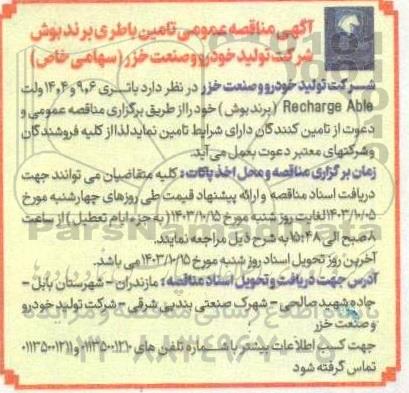 آگهی مناقصه عمومی تامین باطری برند بوش
شرکت تولید خودرو و صنعت خزر (سهامی خاص)
شرکت تولید خودرو و صنعت خزر در نظر دارد باتری ۹,۶ و ۱۴,۴ ولت
Recharge Able (برند بوش) خود را از طریق برگزاری مناقصه عمومی و
دعوت از تامین کنندگان دارای شرایط تامین نماید لذا از کلیه فروشندگان
و شرکتهای معتبر دعوت بعمل می آید.
زمان برگزاری مناقصه و محل اخذ پاکات: کلیه متقاضیان می توانند جهت
دریافت اسناد مناقصه و ارائه پیشنهاد قیمت طی روزهای چهارشنبه مورخ
۱۴۰۳/۱۰/۵ لغایت روز شنبه مورخ ۱۴۰۳/۱۰/۱۵ (به جزء ایام تعطیل) از ساعت
۸ صبح الی ۱۵:۴۸ به شرح ذیل مراجعه نمایند.
آخرین روز تحویل اسناد روز شنبه مورخ ۱۴۰۳/۱۰/۱۵ می باشد.
آدرس جهت دریافت و تحویل اسناد مناقصه: مازندران - شهرستان بابل -
جاده شهید صالحی - شهرک صنعتی بندپی شرقی - شرکت تولید خودرو
و صنعت خزر
جهت کسب اطلاعات بیشتر با شماره تلفن های ۰۱۱۳۵۰۰۱۲۱۰ و ۰۱۱۳۵۰۰۱۲۱۱
تماس گرفته شود
ParsNamadData